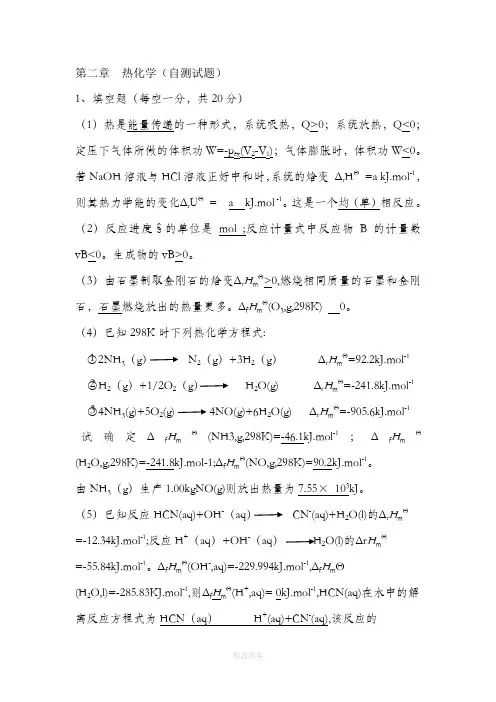 第二章 热化学（自测试题）
1、填空题（每空一分，共20分）
（1）热是能量传递的一种形式，系统吸热，Q>0；系统放热，Q<0；
定压下气体所做的体积功W=-pex(V2-V1)；气体膨胀时，体积功W<0。
若NaOH溶液与HCl溶液正好中和时,系统的焓变 ΔrHΘ =a kJ.mol-1，
则其热力学能的变化ΔrUΘ = a kJ.mol-1。这是一个均（单）相反应。
（2）反应进度§的单位是 mol ;反应计量式中反应物B的计量数
vB<0。生成物的vB>0。
（3）由石墨制取金刚石的焓变ΔrHmΘ>0,燃烧相同质量的石墨和金刚
石，石墨燃烧放出的热量更多。ΔfHmΘ(O3,g,298K) 0。
（4）已知298K时下列热化学方程式:
①2NH3（g）⟶ N2（g）+3H2（g） ΔrHmΘ=92.2kJ.mol-1
②H2（g）+1/2O2（g）⟶ H2O(g) ΔrHmΘ=-241.8kJ.mol-1
③4NH3(g)+5O2(g)⟶4NO(g)+6H2O(g) ΔrHmΘ=-905.6kJ.mol-1
试确定ΔfHmΘ(NH3,g,298K)=-46.1kJ.mol-1；ΔfHmΘ
(H2O,g,298K)=-241.8kJ.mol-1;ΔfHmΘ(NO,g,298K)=90.2kJ.mol-1。
由NH3（g）生产1.00kgNO(g)则放出热量为7.55× 103kJ。
（5）已知反应HCN(aq)+OH-（aq）⟶ CN-(aq)+H2O(l)的ΔrHmΘ
=-12.34kJ.mol-1;反应H+（aq）+OH-（aq）⟶H2O(l)的ΔrHmΘ
=-55.84kJ.mol-1。ΔfHmΘ(OH-,aq)=-229.994kJ.mol-1,ΔfHmΘ
(H2O,l)=-285.83KJ.mol-1,则ΔfHmΘ(H+,aq)= 0kJ.mol-1,HCN(aq)在水中的解
离反应方程式为HCN（aq） H+(aq)+CN-(aq),该反应的